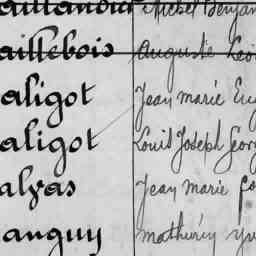 aillandier Michel Benjam
aillebois Auguste Léo
aligot Jean marie Eug
aligot Louis Joseph Georg
alvas Jean marie
anguy mathurin yv